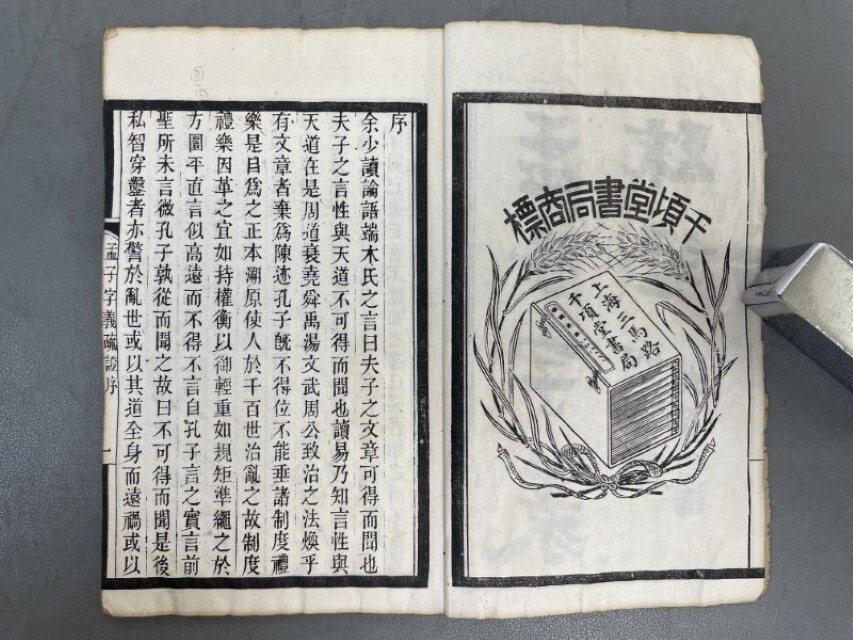 千頃堂書局商標
上海三馬路
千頃堂書局
序
余少讀論語端木氏之言曰夫子之文章可得而聞也
夫子之言性與天道不可得而聞也讀易乃知言性與
天道在是周道衰堯舜禹湯文武周公致治之法煥乎
有文章者棄爲陳迹孔子旣不得位不能垂諸制度禮
樂是目爲之正本溯原使人於千百世治亂之故制度
禮樂因革之宜如持權衡以御輕重如規矩準繩之於
方圜平直言似高遠而不得不言自孔子言之實言前
聖所未言微孔子孰從而聞之故曰不可得而聞是後
私智穿鑿者亦警於亂世或以其道全身而遠禍或以
孟子字義疏證序
一